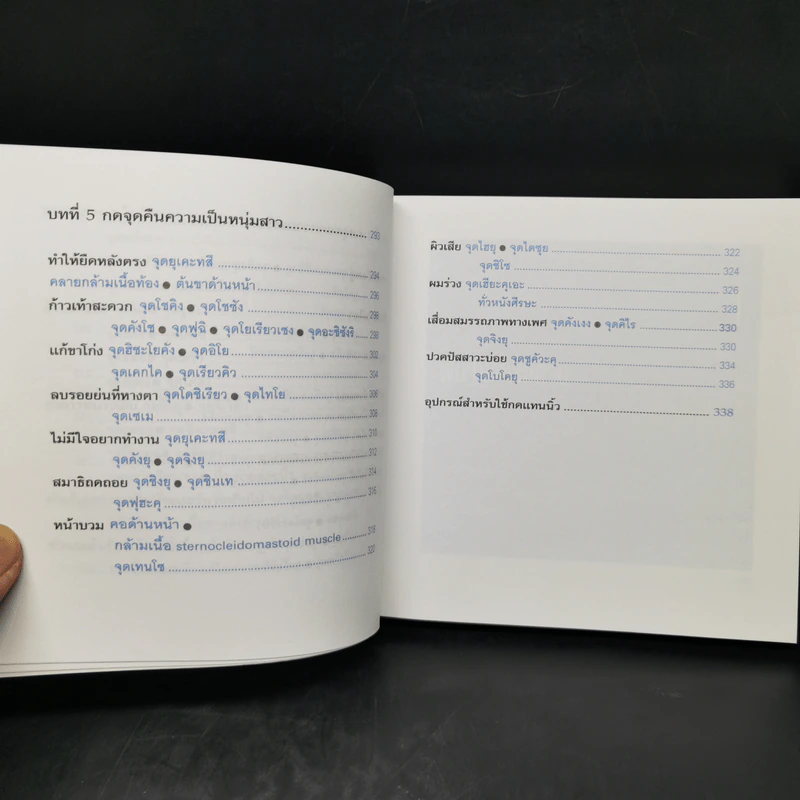 บทที่ 5 กดจุดคืนความเป็นหนุ่มสาว.....................293
ทำให้ยืดหลังตรง จุดยุเคะทสึ.....................294
คลายกล้ามเนื้อท้อง ● ต้นขาด้านหน้า.....................296
ก้าวเท้าสะดวก จุดโซคิง ● จุดโชซัง
จุดคังโช ● จุดฟูฉิ ● จุดโยเรียวเซง ● จุดอะชิซังริ 298
แก้ขาโก่ง จุดฮิชะโยคัง ● จุดอิโย.....................302
จุดเคกไค ● จุดเรียวคิว.....................304
ลบรอยย่นที่หางตา จุดโดชิเรียว ● จุดไทโย.....................306
จุดเซเม.....................308
ไม่มีใจอยากทำงาน จุดยุเคะทสึ.....................310
จุดคังยุ ● จุดจิงยุ.....................312
สมาธิถดถอย จุดชิงยุ ● จุดชินเท.....................314
จุดฟุฮะคุ.....................316
หน้าบวม คอด้านหน้า ●
กล้ามเนื้อ sternocleidomastoid muscle.....................318
จุดเทนโซ.....................320
ผิวเสีย จุดไฮยุ ● จุดไดซุย.....................322
จุดชิโซ.....................324
ผมร่วง จุดเฮียะคุเอะ.....................326
ทั่วหนังศีรษะ.....................328
เสื่อมสมรรถภาพทางเพศ จุดคังเงง ● จุดคิไร.....................330
จุดจิงยุ.....................330
ปวดปัสสาวะบ่อย จุดชูคัวะคุ.....................334
จุดโบโคยุ.....................336
อุปกรณ์สำหรับใช้กดแทนนิ้ว.....................338